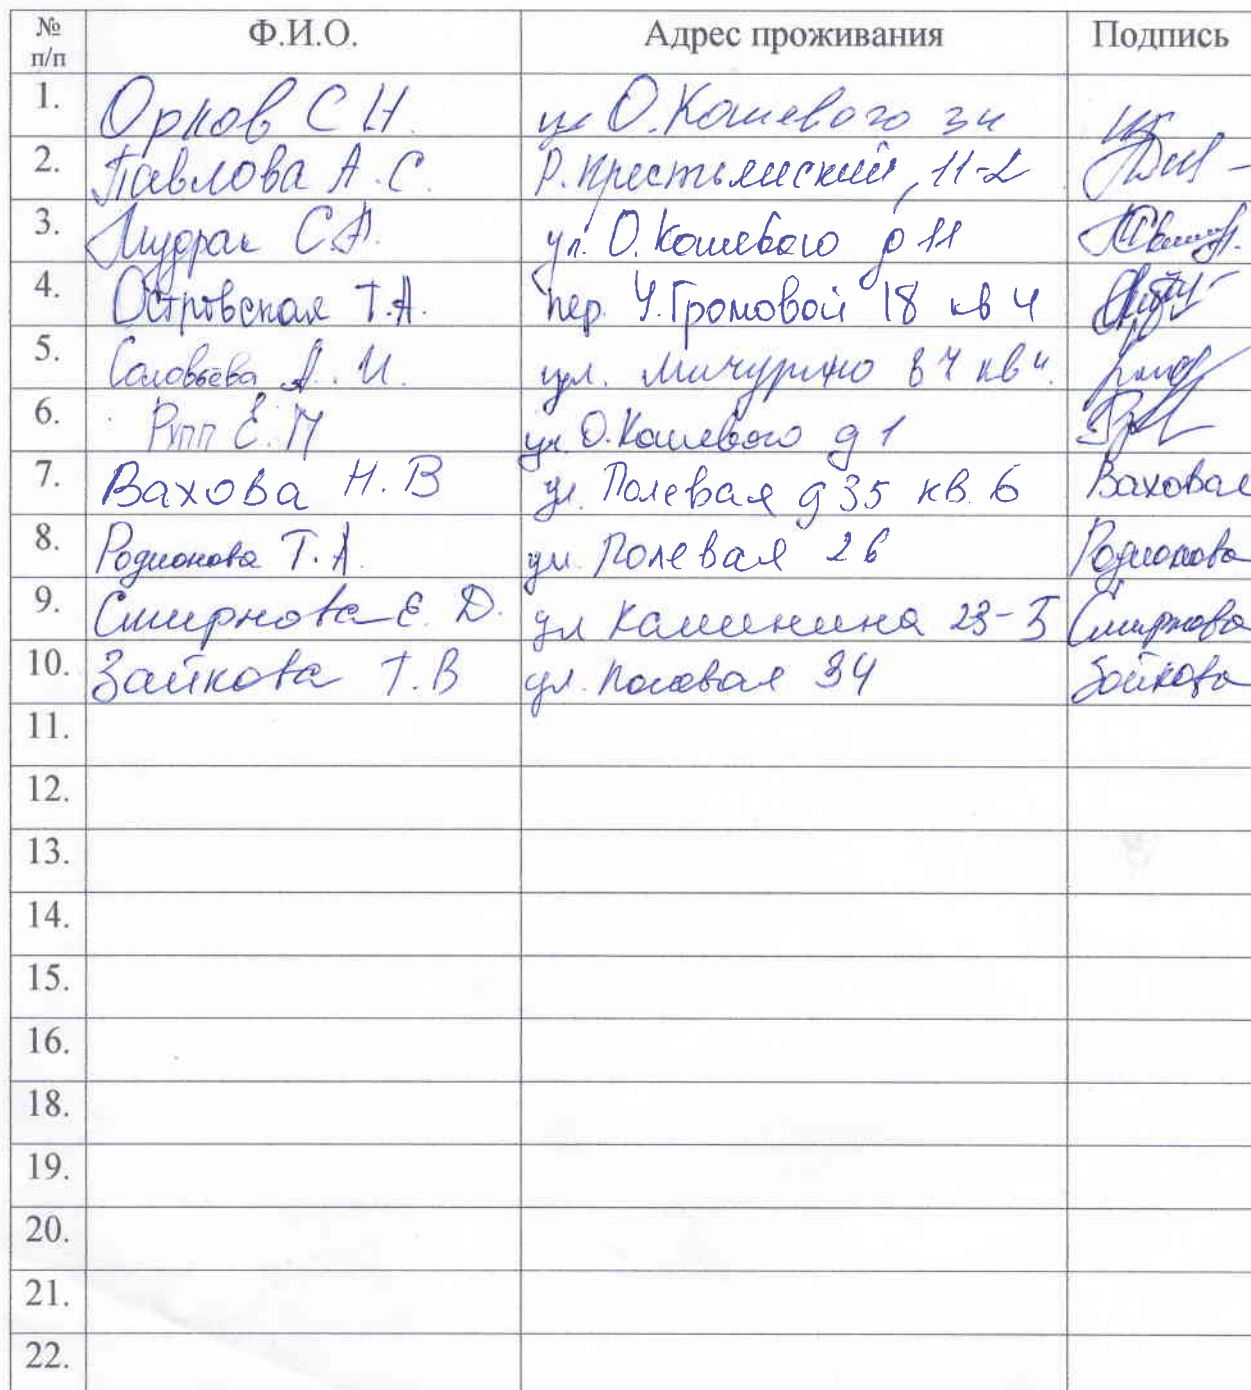 № п/п Ф.И.О. Адрес проживания Подпись
1. Орлов С Н. ул О.Кошевого
2. Павлова А.С. Р.Крестьянский, 11-2
3. Мудрак С.А. ул. О.Кошевого д 11
4. Островская Т.А. пер. У.Громовой 18 кв 4
5. Соловьёва А.И. ул. Мичурино
6. Рупп Е.М ул О.Кошевого д 1
7. Вахова Н.В ул. Полевая д 35 кв. 6 Ваховая
8. Родионова Т.А. ул. Полевая 26 Родионова
9. Смирнова Е.Д. ул Калинина 23-5 Смирнова
10. Зайкова Т.В ул. Полевая 34 Зайкова
11.
12.
13.
14.
15.
16.
18.
19.
20.
21.
22.